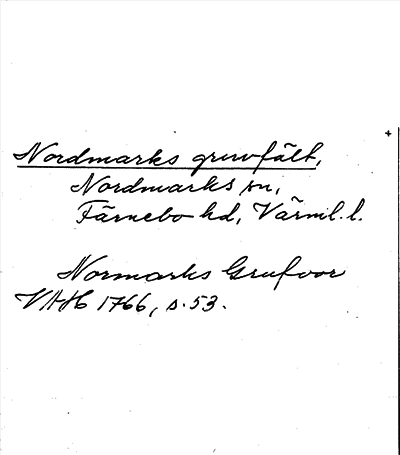 Nordmarks gruvfält,
Nordmarks sn,
Färnebo hd, Värml. l.
Normarks Grufvor
VAH 1766, s. 53.